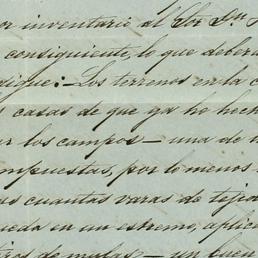 or inventario al Sor Dn
consiguiente, lo que deber
digue: - Los terrenos en la c
casas de que ya he hech
ar los campos - una de
mpuestas, por lo menos
as cuantas varas de tejid
ueda en un estremo, aplic
tiros de mulas - un buen